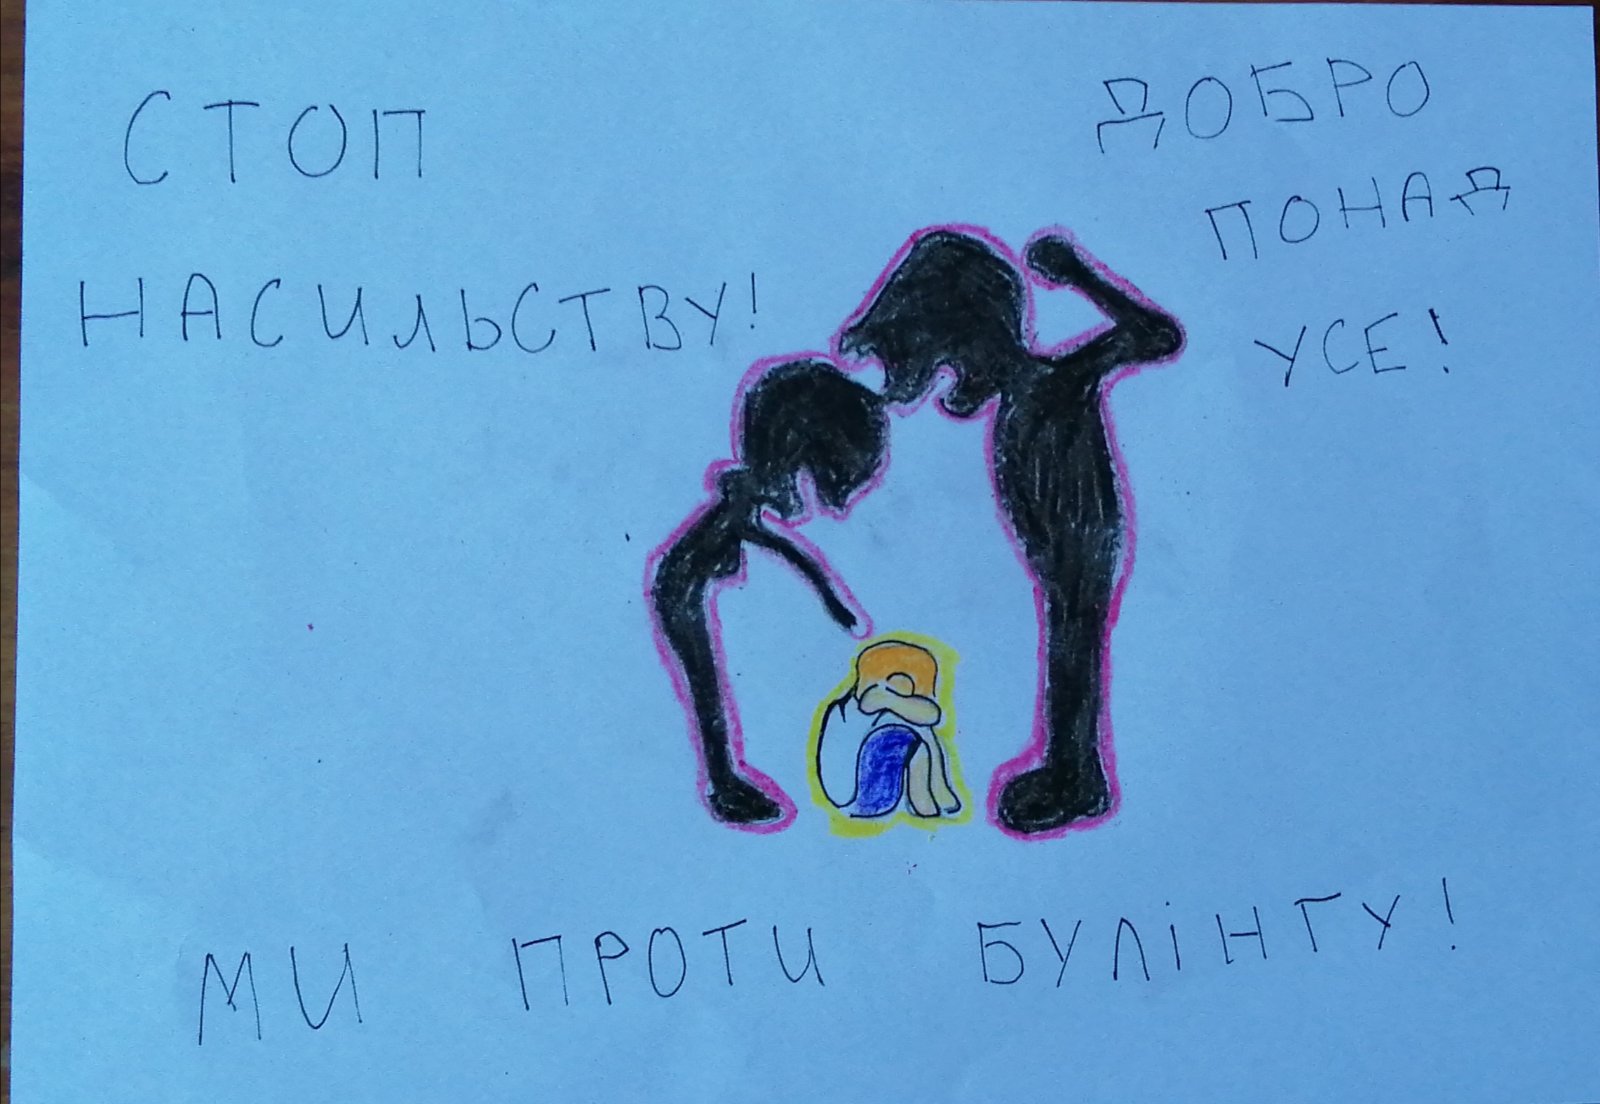 СТОП
НАСИЛЬСТВУ!
ДОБРО
ПОНАД
УСЕ!
МИ ПРОТИ БУЛІНГУ!